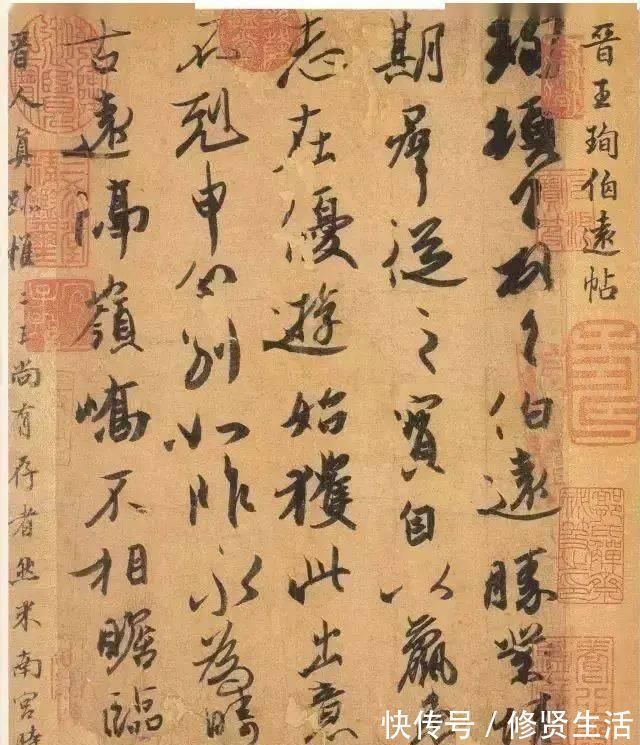 晉王珣伯遠帖
珣頓首頓首伯遠勝業情
期羣從之寶自以羸患
志在優遊始獲此出意
不剋申分別如昨永為疇
古遠隔嶺嶠不相瞻臨
晉人真跡惟二王尚有存者然米南宮時
快传号 / 修贤生活